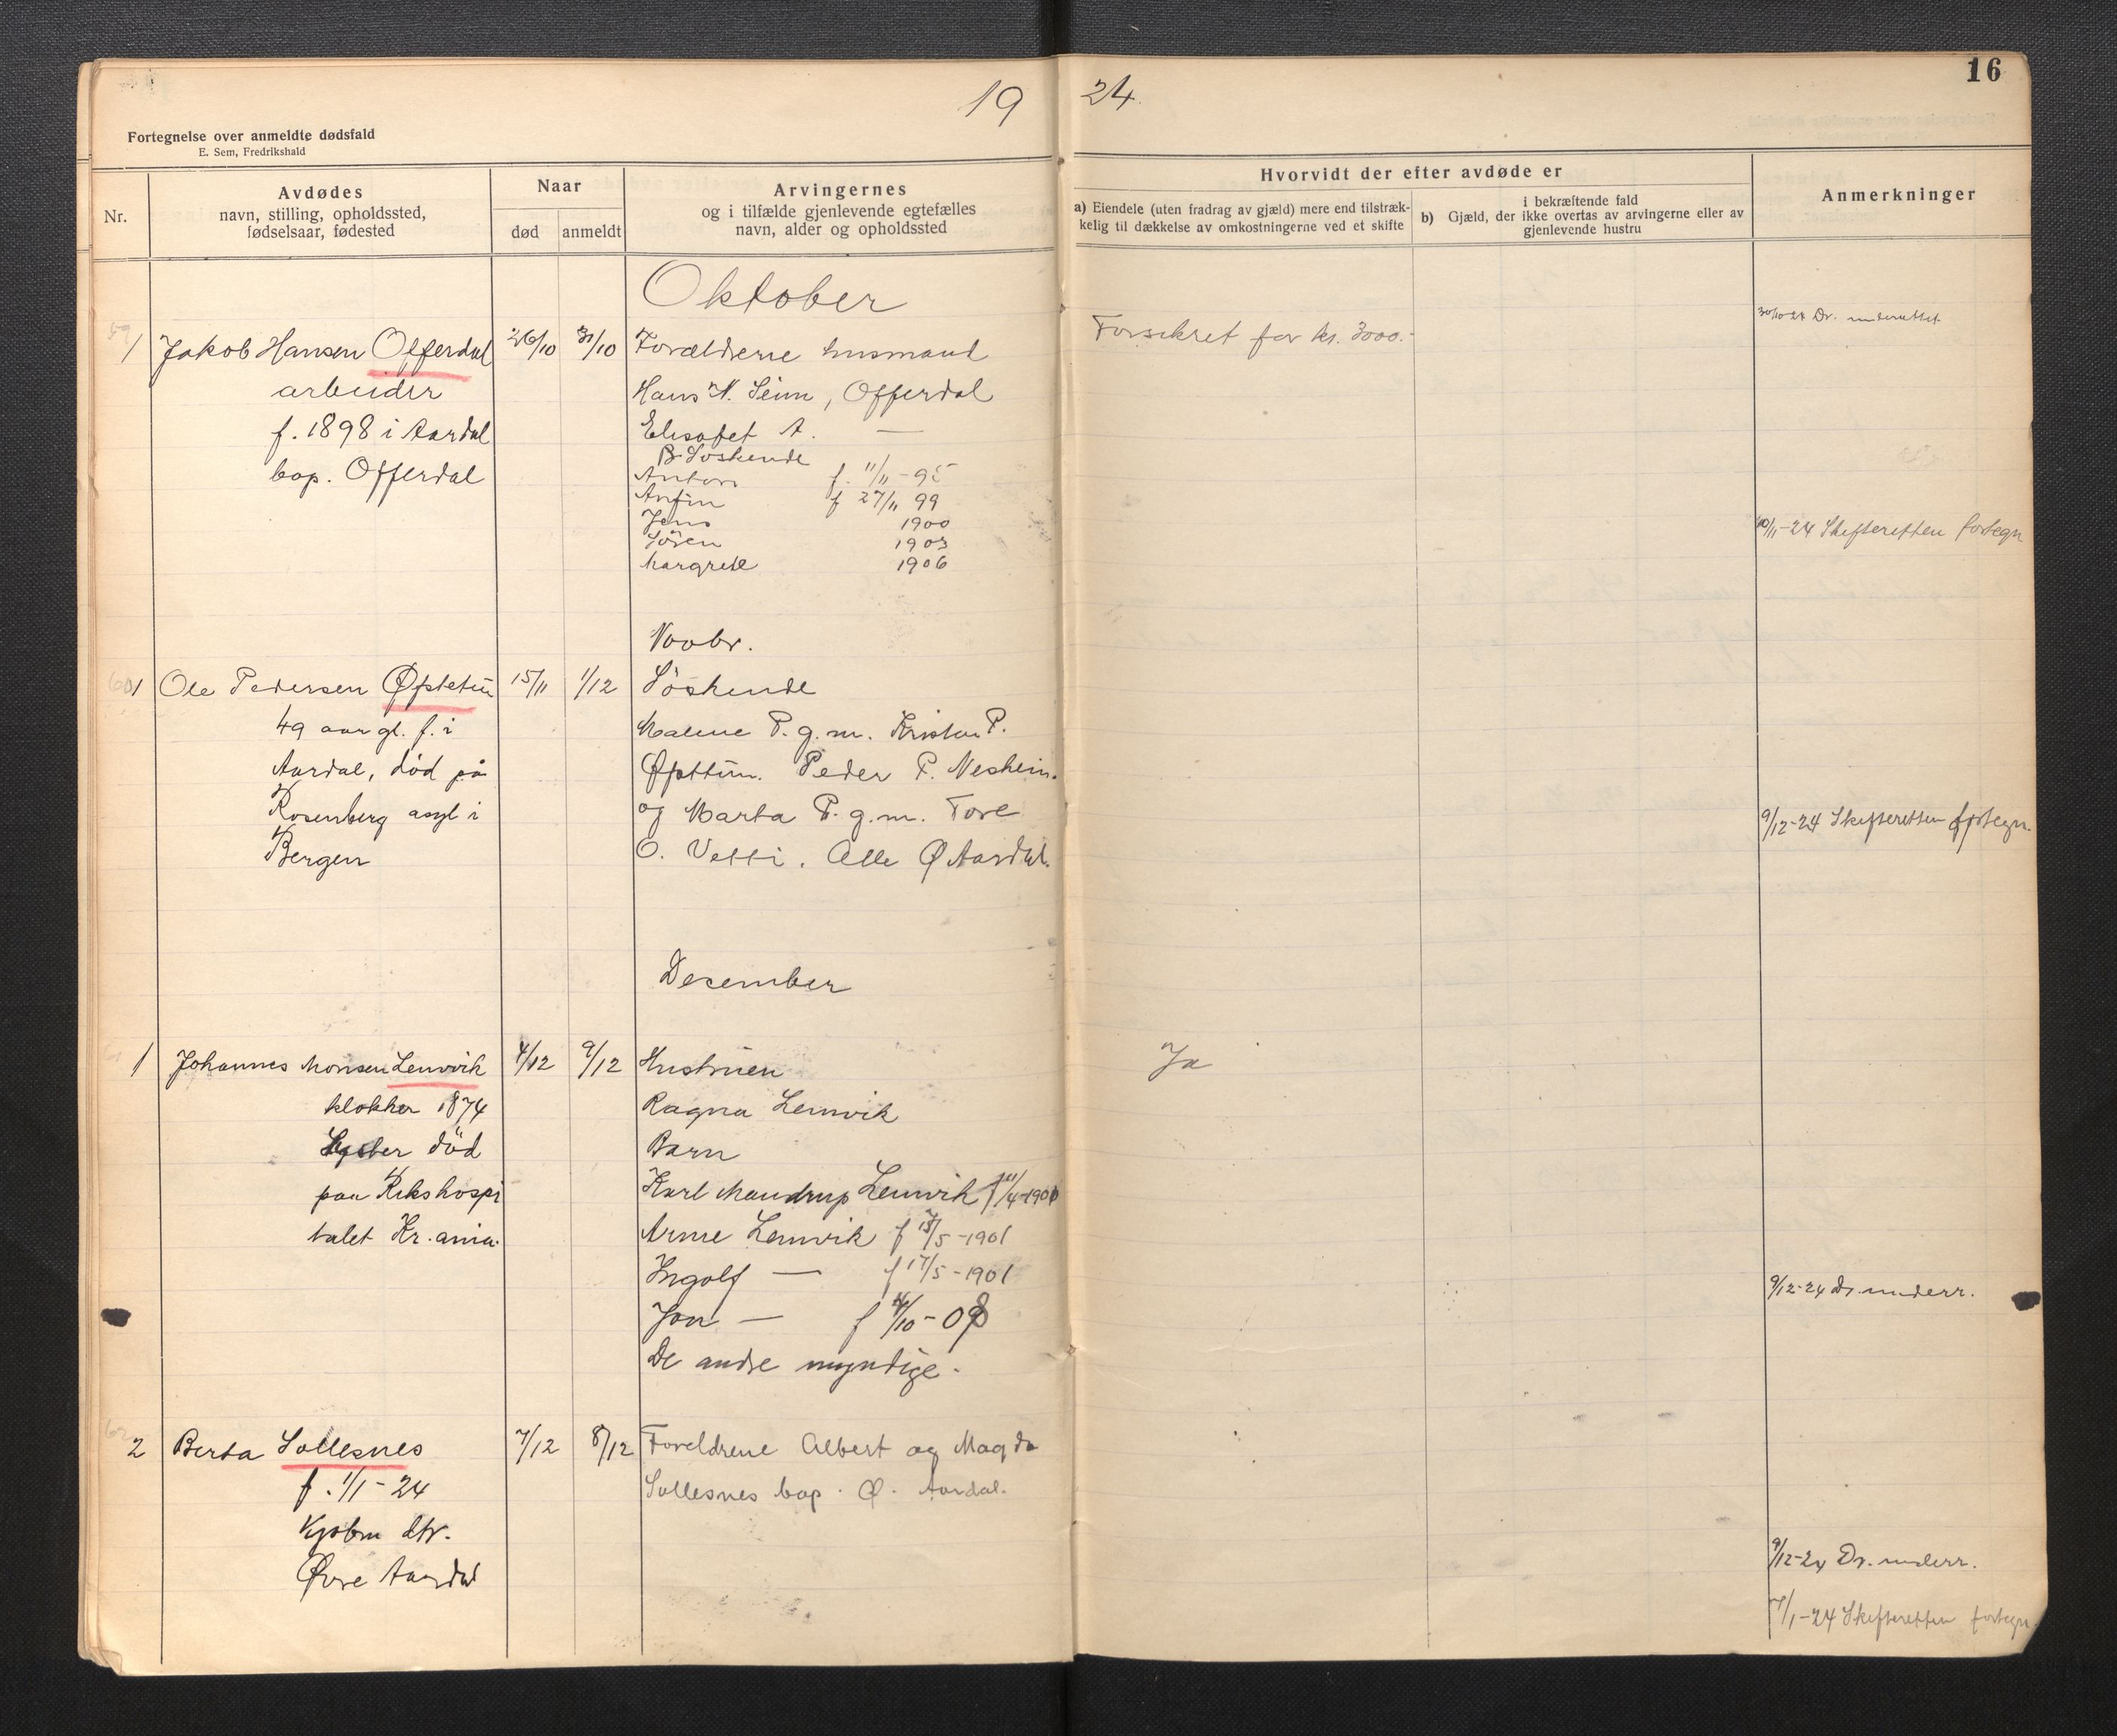 19 24.
16
Fortegnelse over anmeldte dødsfald
E. Sem, Fredrikshald
Nr.
Avdødes
navn, stilling, opholdssted,
fødselsaar, fødested
Naar
død
anmeldt
Arvingernes
og i tilfælde gjenlevende egtefælles
navn, alder og opholdssted
Hvorvidt der efter avdøde er
a) Eiendele (uten fradrag av gjæld) mere end tilstræk-
kelig til dækkelse av omkostningerne ved et skifte
i bekræftende fald
b) Gjæld, der ikke overtas av arvingerne eller av
gjenlevende hustru
Anmerkninger
Oktober
59
1 Jakob Hansen Offerdal 26/10 31/10 Forældrene husmand
arbeider Hans N. Seim, Offerdal
f. 1898 i Aardal Elisabet A. —
bop. Offerdal B. Søskende
Anton f. 11/11-95
Anfin f 27/11 99
Jens 1900
Sören 1903
Margrete 1906
Forsikret for kr. 3000.-
30/10 24 Dr. underettet
10/11-24 Skifteretten fortegn
Novbr.
60 1 Ole Pedersen Øfstetun 15/11 1/12 Söskende
49 aar gl. f. i Malene P. g.m. Kristen P.
Aardal, död på Øfstetun. Peder P. Nesheim.
Rosenberg asyl i og Marta P. g.m. Tore
Bergen O. Vetti. Alle Ø Aardal.
9/12-24 Skifteretten fortegn.
Desember
1 Johannes Monsen Lemvik 4/12 9/12 Hustruen
klokker 1874 Ragna Lemvik
Lyster död Barn
paa Rikshospi Karl Mandrup Lemvik f /4-1900
talet Kr.ania. Arne Lemvik f 15/5-1901
Ingolf — f 17/5-1901
Jon — f /10-08
De andre myndige.
Ja
9/12-24 Dr. underr.
62
2 Berta Sollesnes 7/12 8/12 Foreldrene Albert og Magda
f. 1/1-24 Sollesnes bop. Ø. Aardal.
Kjøbm dtr.
Øvre Aardal
9/12-24 Dr. underr.
7/1-24 Skifteretten fortegn